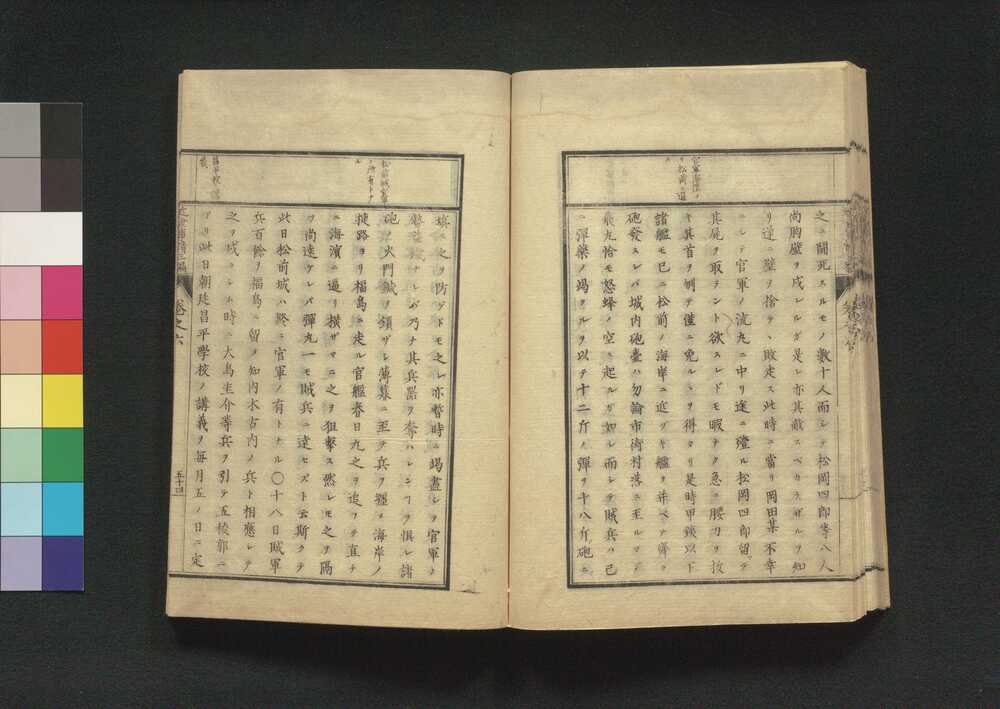 之ニ鬪死スルモノ數十人而シテ松岡四郎等八人
尚胸壁ヲ戍レルガ是レ亦其敵スベカラザルヲ知
リ遂ニ壁ヲ捨テヽ敗走ス此時ニ當リ岡田某不幸
ニシテ官軍ノ流丸ニ中リ途ニ殪ル松岡四郎留リテ
其屍ヲ取ラント欲スレドモ暇ナク急ニ腰刀ヲ拔
キ其首ヲ刎テ僅ニ免ルヽヲ得タリ是時甲鐵以下
諸艦モ已ニ松前ノ海岸ニ近ヅキ艦ヲ並ベテ齊ク
砲發スレバ城内砲臺ハ勿論市街村落ニ至ルマデ
飛丸恰モ怒蜂ノ空ニ起ルガ如シ而シテ賊兵ハ已
ニ彈藥ノ竭クルヲ以テ十二斤ノ彈ヲ十八斤砲ニ
填シ之ヲ防グトモ之レ亦暫時ニ竭盡シヲ官軍ノ
乃ナ其兵器ヲ奪ハレンヿヲ惧レ諸
砲ノ火門鍼ヲ頒ザレ薄暮ニ至テ兵ヲ纒メ海岸ノ
捷路ヨリ福島ニ走ル官艦春日丸之ヲ追フテ直チ
ニ海濱ニ逼リ横ザマニ之ヲ狙擊ス然レモ之ヲ隔
ヿ尚遠ケレバ彈丸一モ賊兵ニ達セズト云斯クテ
此日松前城ハ終ニ官軍ノ有トナル〇十八日賊軍
兵百餘ヲ福島ニ留メ知内木古内ノ兵ト相應シテ
之ヲ戍ラシム時ニ大鳥圭介等兵ヲ引テ五稜郭ニ
アリ此日朝廷昌平學校ノ講義ヲ毎月五ノ日ニ定
松前城官軍
ノ所有トナ
ル
卷之六
五十四